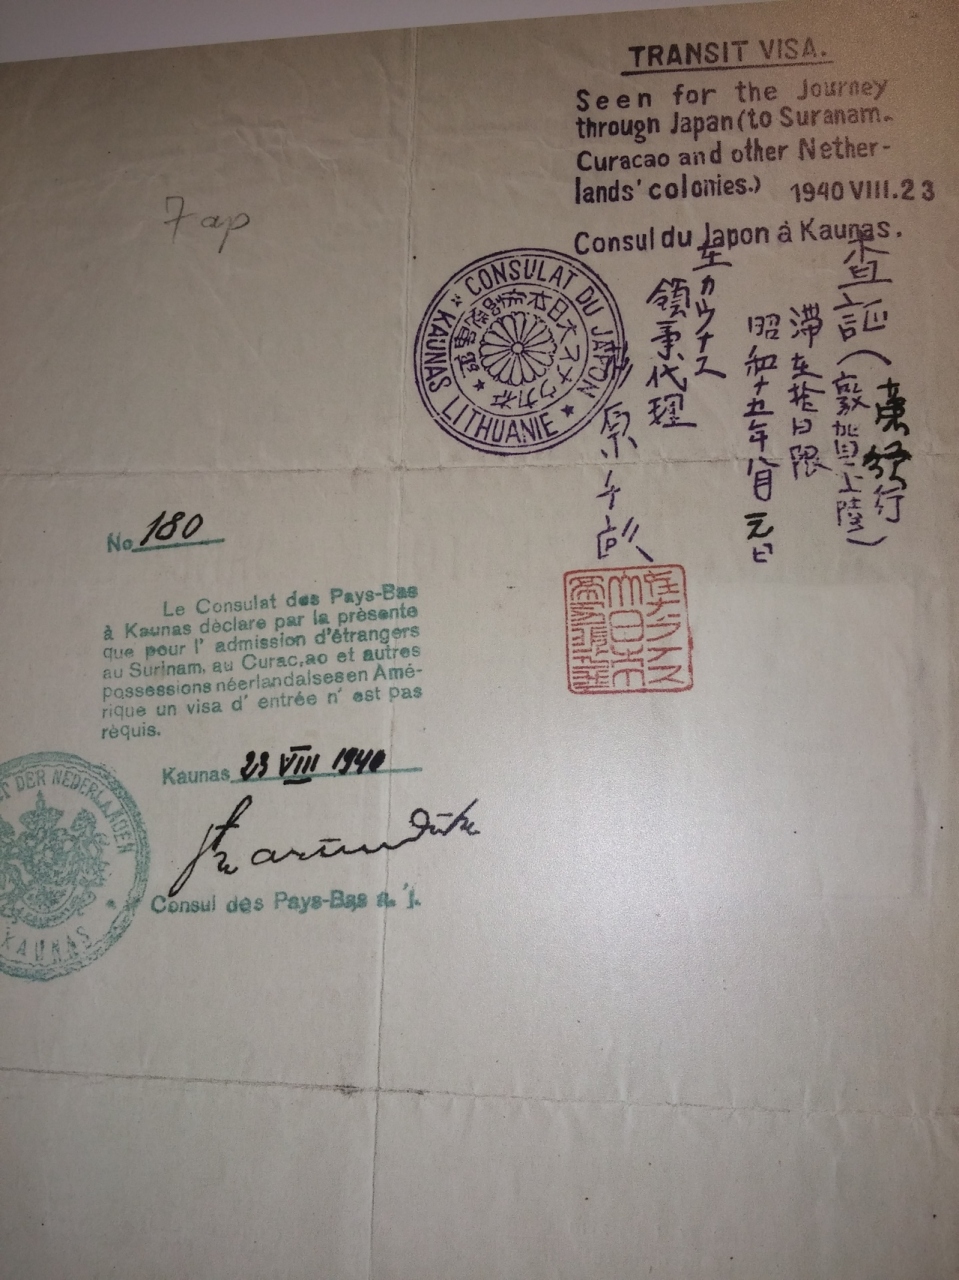 TRANSIT VISA.
Seen for the Journey
through Japan (to Suranam.
Curacao and other Nether-
lands' colonies.) 1940 VIII.23
Consul du Japon à Kaunas.
7 ap
CONSULAT DU JAPON
KAUNAS LITHUANIE
査証(敦賀上陸)
行
滞在拾日限
昭和十五年八月
日
領事代理
在カウナス
原千畝
No 180
Le Consulat des Pays-Bas
à Kaunas dèclare par la prèsente
que pour l' admission d'ètrangers
au Surinam, au Curac,ao et autres
possessions néerlandalsesen Amé-
rique un visa d' entrée n' est pas
rèquis.
Kaunas 23 VIII 1940
Consul des Pays-Bas a. i.
DER NEDERLANDEN
KAUNAS